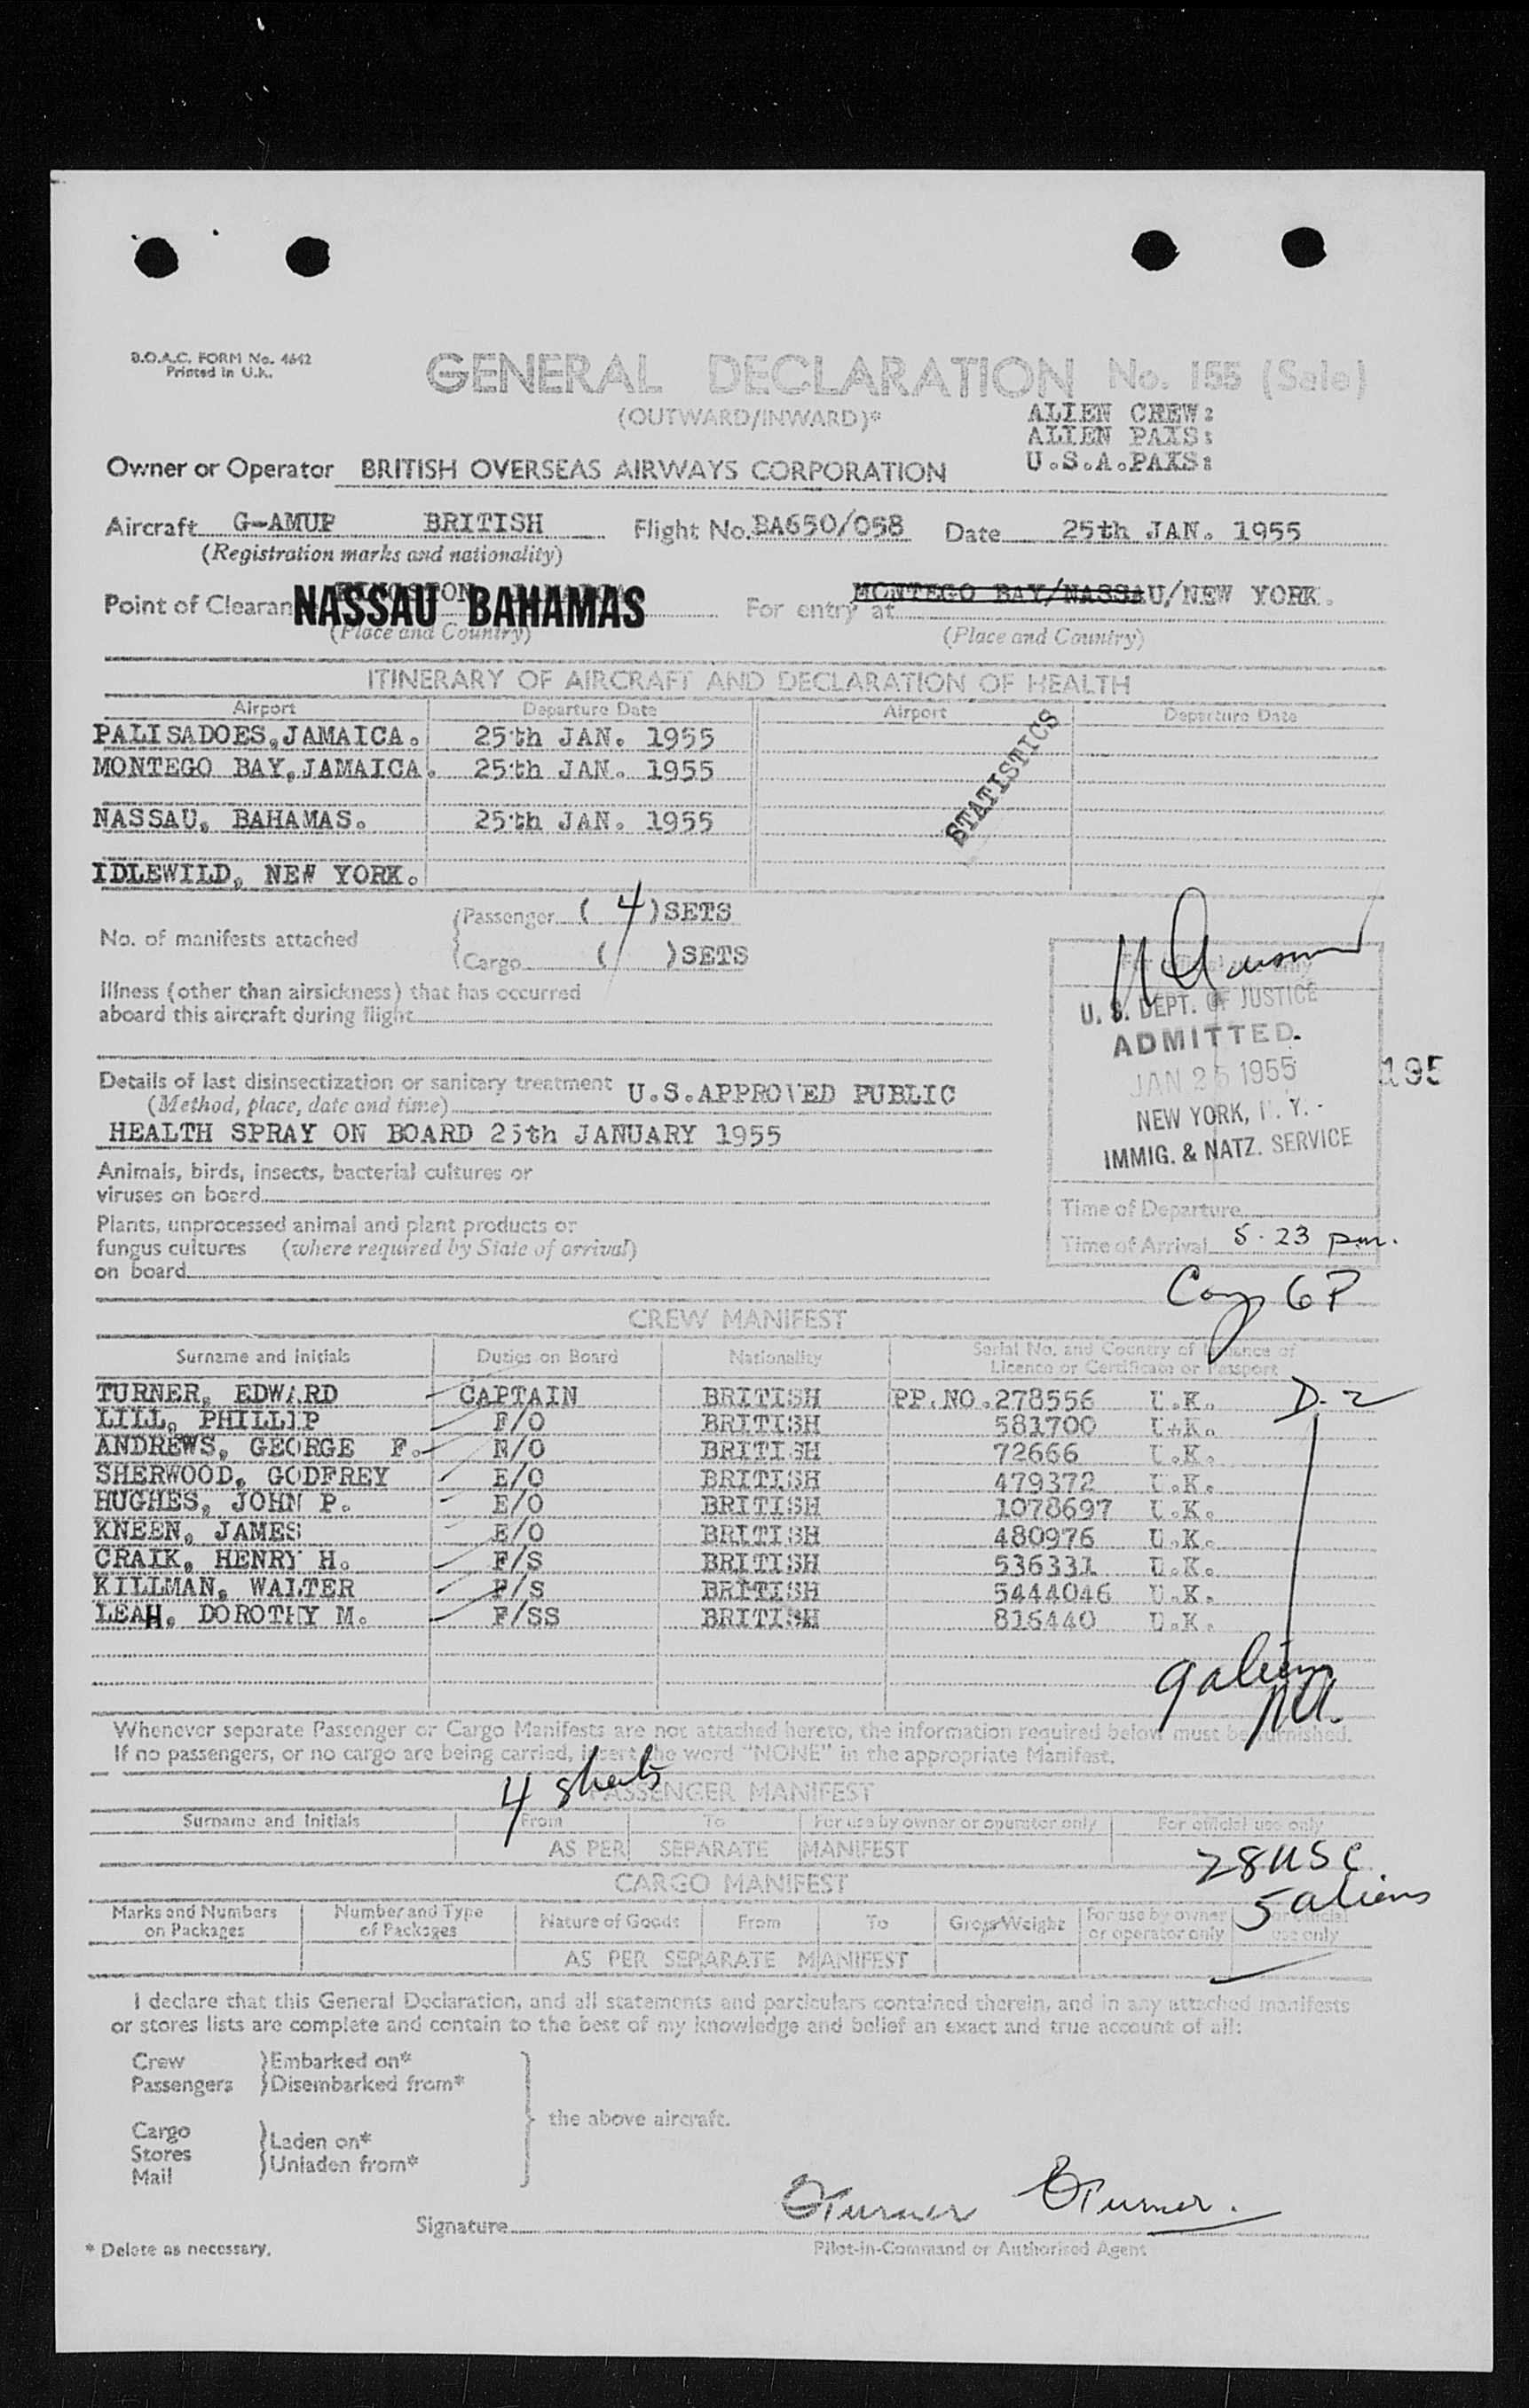 B.O.A.C. FORM No. 4642
Printed in U.K.
GENERAL DECLARATION No. 155 (Sale)
(OUTWARD/INWARD)*
ALIEN CREW:
ALIEN PAXS:
U.S.A.PAXS:
Owner or Operator BRITISH OVERSEAS AIRWAYS CORPORATION
Aircraft G-AMUP BRITISH Flight No. BA650/058 Date 25th JAN. 1955
(Registration marks and nationality)
Point of Clearan NASSAU BAHAMAS For entry at MONTEGO BAY/NASSAU/NEW YORK.
(Place and Country) (Place and Country)
ITINERARY OF AIRCRAFT AND DECLARATION OF HEALTH
Airport Departure Date Airport Departure Date
PALISADOES, JAMAICA. 25th JAN. 1955
MONTEGO BAY, JAMAICA. 25th JAN. 1955
STATISTICS
NASSAU, BAHAMAS. 25th JAN. 1955
IDLEWILD, NEW YORK.
No. of manifests attached
Passenger ( 4 ) SETS
Cargo ( ) SETS
Illness (other than airsickness) that has occurred
aboard this aircraft during flight
U. S. DEPT. OF JUSTICE
ADMITTED.
JAN 25 1955
195
NEW YORK, N. Y. -
IMMIG. & NATZ. SERVICE
Details of last disinsectization or sanitary treatment U.S.APPROVED PUBLIC
(Method, place, date and time)
HEALTH SPRAY ON BOARD 25th JANUARY 1955
Animals, birds, insects, bacterial cultures or
viruses on board
Time of Departure
Plants, unprocessed animal and plant products or
fungus cultures (where required by State of arrival)
on board
Time of Arrival 5.23 pm.
CREW MANIFEST
Surname and Initials Duties on Board Nationality Serial No. and Country of Issuance of
Licence or Certificate or Passport
TURNER, EDWARD CAPTAIN BRITISH PP.NO.278556 U.K. D-2
LILL, PHILLIP F/O BRITISH 581700 U.K.
ANDREWS, GEORGE F. N/O BRITISH 72666 U.K.
SHERWOOD, GODFREY E/O BRITISH 479372 U.K.
HUGHES, JOHN P. E/O BRITISH 1078697 U.K.
KNEEN, JAMES E/O BRITISH 480976 U.K.
CRAIK, HENRY H. F/S BRITISH 536331 U.K.
KILLMAN, WALTER F/S BRITISH 5444046 U.K.
LEAH, DOROTHY M. F/SS BRITISH 816440 U.K.
9 aliens
Whenever separate Passenger or Cargo Manifests are not attached hereto, the information required below must be furnished.
If no passengers, or no cargo are being carried, insert the word "NONE" in the appropriate Manifest.
4 sheets
PASSENGER MANIFEST
Surname and Initials From To For use by owner or operator only For official use only
AS PER SEPARATE MANIFEST
28 USC
5 aliens
CARGO MANIFEST
Marks and Numbers on Packages Number and Type of Packages Nature of Goods From To Gross Weight For use by owner or operator only For official use only
AS PER SEPARATE MANIFEST
I declare that this General Declaration, and all statements and particulars contained therein, and in any attached manifests
or stores lists are complete and contain to the best of my knowledge and belief an exact and true account of all:
Crew
Passengers
Embarked on*
Disembarked from*
Cargo
Stores
Mail
Laden on*
Unladen from*
the above aircraft.
Signature ETurner ETurner.
* Delete as necessary.
Pilot-in-Command or Authorised Agent